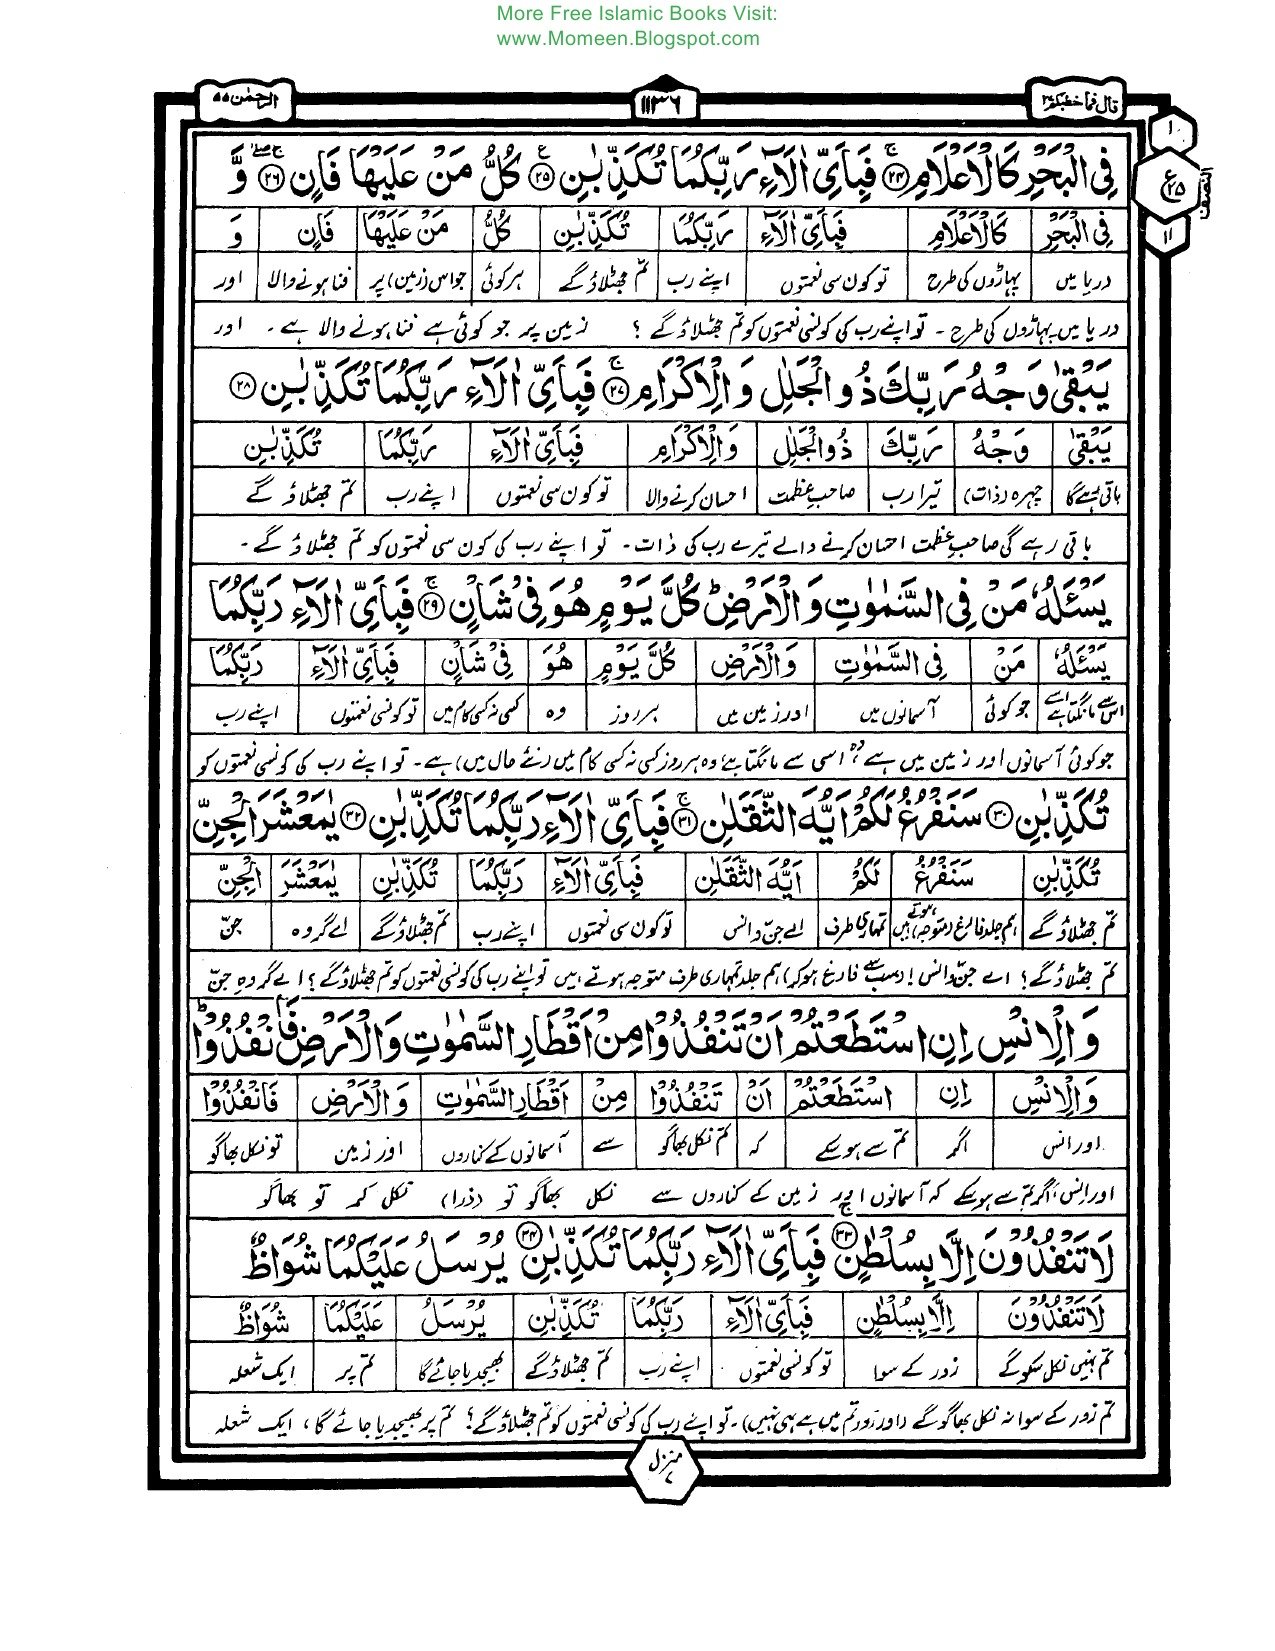 More Free Islamic Books Visit:
www.Momeen.Blogspot.com
قال فما خطبکم ۲۷
۱۱۳۶
الرحمٰن ۵۵
۱۰
ع ۲۵
۱۱
النصف
فِی الْبَحْرِ کَالْاَعْلَامِ ۲۴ۚ فَبِاَیِّ اٰلَآءِ رَبِّکُمَا تُکَذِّبٰنِ ۲۵ع کُلُّ مَنْ عَلَیْهَا فَانٍ ۲۶ وَّ
فِی الْبَحْرِ کَالْاَعْلَامِ فَبِاَیِّ اٰلَآءِ رَبِّکُمَا تُکَذِّبٰنِ کُلُّ مَنْ عَلَیْهَا فَانٍ وَ
دریا میں پہاڑوں کی طرح تو کون سی نعمتوں اپنے رب تم جھٹلاؤ گے ہر کوئی جو اس (زمین) پر فنا ہونے والا اور
دریا میں پہاڑوں کی طرح ۔ تو اپنے رب کی کونسی نعمتوں کو تم جھٹلاؤ گے ؟ زمین پر جو کوئی ہے فنا ہونے والا ہے ۔ اور
یَبْقٰی وَجْهُ رَبِّکَ ذُو الْجَلٰلِ وَ الْاِکْرَامِ ۲۷ۚ فَبِاَیِّ اٰلَآءِ رَبِّکُمَا تُکَذِّبٰنِ ۲۸
یَبْقٰی وَجْهُ رَبِّکَ ذُو الْجَلٰلِ وَ الْاِکْرَامِ فَبِاَیِّ اٰلَآءِ رَبِّکُمَا تُکَذِّبٰنِ
باقی رہے گا چہرہ (ذات) تیرا رب صاحبِ عظمت احسان کرنے والا تو کون سی نعمتوں اپنے رب تم جھٹلاؤ گے
باقی رہے گی صاحبِ عظمت احسان کرنے والے تیرے رب کی ذات ۔ تو اپنے رب کی کون سی نعمتوں کو تم جھٹلاؤ گے ۔
یَسْئَلُهٗ مَنْ فِی السَّمٰوٰتِ وَ الْاَرْضِ ؕ کُلَّ یَوْمٍ هُوَ فِیْ شَاْنٍ ۲۹ۚ فَبِاَیِّ اٰلَآءِ رَبِّکُمَا
یَسْئَلُهٗ مَنْ فِی السَّمٰوٰتِ وَ الْاَرْضِ کُلَّ یَوْمٍ هُوَ فِیْ شَاْنٍ فَبِاَیِّ اٰلَآءِ رَبِّکُمَا
اس سے مانگتا ہے جو کوئی آسمانوں میں اور زمین میں ہر روز وہ کسی نہ کسی کام میں تو کونسی نعمتوں اپنے رب
جو کوئی آسمانوں اور زمین میں ہے وہ اسی سے مانگتا ہے وہ ہر روز کسی نہ کسی کام میں (نئے حال میں) ہے ۔ تو اپنے رب کی کونسی نعمتوں کو
تُکَذِّبٰنِ ۳۰ سَنَفْرُغُ لَکُمْ اَیُّهَ الثَّقَلٰنِ ۳۱ۚ فَبِاَیِّ اٰلَآءِ رَبِّکُمَا تُکَذِّبٰنِ ۳۲ یٰمَعْشَرَ الْجِنِّ
تُکَذِّبٰنِ سَنَفْرُغُ لَکُمْ اَیُّهَ الثَّقَلٰنِ فَبِاَیِّ اٰلَآءِ رَبِّکُمَا تُکَذِّبٰنِ یٰمَعْشَرَ الْجِنِّ
تم جھٹلاؤ گے ہم جلد فارغ (متوجہ) ہوتے ہیں تمہاری طرف اے جن و انس تو کون سی نعمتوں اپنے رب تم جھٹلاؤ گے اے گروہ جن
تم جھٹلاؤ گے ؟ اے جن و انس ! (سب سے فارغ ہو کر) ہم جلد تمہاری طرف متوجہ ہوتے ہیں تو اپنے رب کی کونسی نعمتوں کو تم جھٹلاؤ گے ؟ اے گروہِ جن
وَ الْاِنْسِ اِنِ اسْتَطَعْتُمْ اَنْ تَنْفُذُوْا مِنْ اَقْطَارِ السَّمٰوٰتِ وَ الْاَرْضِ فَانْفُذُوْا ؕ
وَ الْاِنْسِ اِنِ اسْتَطَعْتُمْ اَنْ تَنْفُذُوْا مِنْ اَقْطَارِ السَّمٰوٰتِ وَ الْاَرْضِ فَانْفُذُوْا
اور انس اگر تم سے ہو سکے کہ تم نکل بھاگو سے آسمانوں کے کناروں اور زمین تو نکل بھاگو
اور انس ، اگر تم سے ہو سکے کہ آسمانوں اور زمین کے کناروں سے نکل بھاگو تو (ذرا) نکل کر تو بھاگو
لَا تَنْفُذُوْنَ اِلَّا بِسُلْطٰنٍ ۳۳ فَبِاَیِّ اٰلَآءِ رَبِّکُمَا تُکَذِّبٰنِ ۳۴ یُرْسَلُ عَلَیْکُمَا شُوَاظٌ
لَا تَنْفُذُوْنَ اِلَّا بِسُلْطٰنٍ فَبِاَیِّ اٰلَآءِ رَبِّکُمَا تُکَذِّبٰنِ یُرْسَلُ عَلَیْکُمَا شُوَاظٌ
تم نہیں نکل سکو گے زور کے سوا تو کونسی نعمتوں اپنے رب تم جھٹلاؤ گے بھیجدیا جائے گا تم پر ایک شعلہ
تم زور کے سوا نہ نکل بھاگو گے (اور زور تم میں ہے ہی نہیں) ۔ تو اپنے رب کی کونسی نعمتوں کو تم جھٹلاؤ گے ؟ تم پر بھیجدیا جائے گا ، ایک شعلہ
منزل ۷